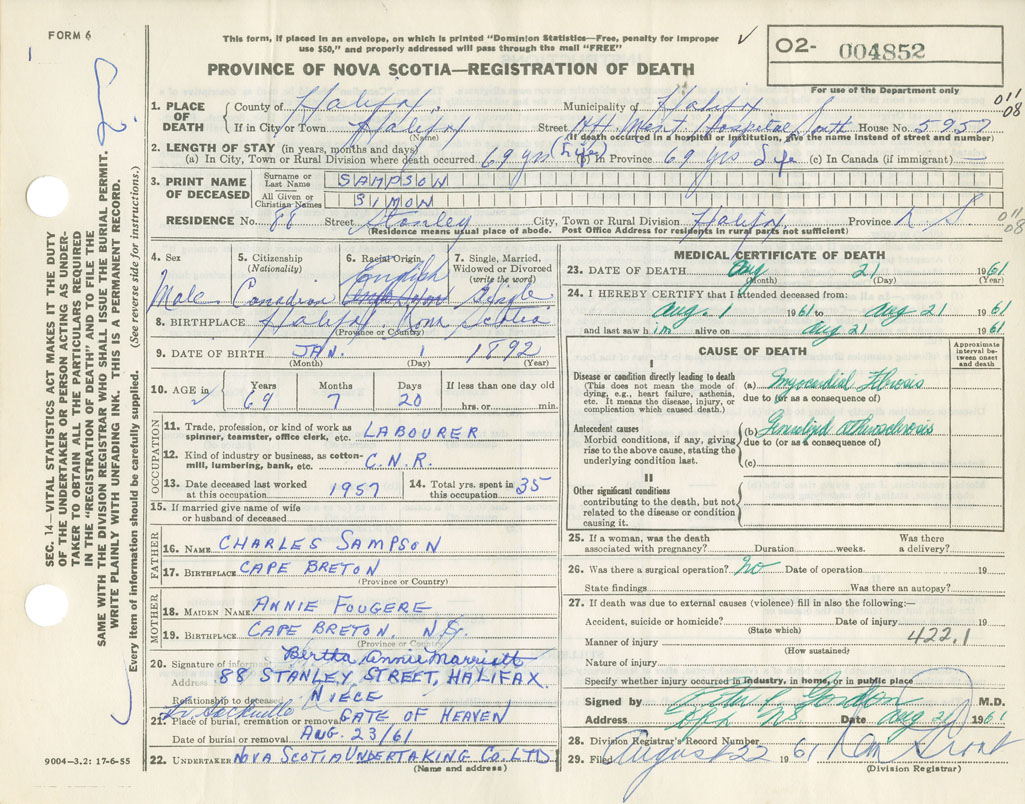 FORM 6
This form, if placed in an envelope, on which is printed "Dominion Statistics—Free, penalty for improper
use $50," and properly addressed will pass through the mail "FREE"
O2- 004852
PROVINCE OF NOVA SCOTIA—REGISTRATION OF DEATH
For use of the Department only
011
08
1. PLACE OF DEATH
County of Halifax. Municipality of Halifax
If in City or Town Halifax Street Hospital South House No. 5957
(Name) (If death occurred in a hospital or institution, give the name instead of street and number)
2. LENGTH OF STAY (in years, months and days)
(a) In City, Town or Rural Division where death occurred 69 yrs (Life) (b) In Province 69 yrs Life (c) In Canada (if immigrant) —
3. PRINT NAME OF DECEASED
Surname or Last Name SAMPSON
All Given or Christian Names SIMON
RESIDENCE No. 88 Street Stanley City, Town or Rural Division Halifax Province N. S
(Residence means usual place of abode. Post Office Address for residents in rural parts not sufficient)
011
08
4. Sex Male
5. Citizenship (Nationality) Canadian
6. Racial Origin English
7. Single, Married, Widowed or Divorced (write the word) Single
8. BIRTHPLACE Halifax, Nova Scotia
(Province or Country)
9. DATE OF BIRTH JAN. 1 1892
(Month) (Day) (Year)
10. AGE in Years 69 Months 7 Days 20 If less than one day old hrs. or min.
OCCUPATION
11. Trade, profession, or kind of work as spinner, teamster, office clerk, etc. LABOURER
12. Kind of industry or business, as cotton-mill, lumbering, bank, etc. C.N.R.
13. Date deceased last worked at this occupation 1957
14. Total yrs. spent in this occupation 35
15. If married give name of wife or husband of deceased
FATHER
16. NAME CHARLES SAMPSON
17. BIRTHPLACE CAPE BRETON
(Province or Country)
MOTHER
18. MAIDEN NAME ANNIE FOUGERE
19. BIRTHPLACE CAPE BRETON, N.S.
(Province or Country)
20. Signature of informant Bertha Annie Marriott
Address 88 STANLEY STREET, HALIFAX.
Relationship to deceased NIECE
21. Place of burial, cremation or removal GATE OF HEAVEN
Lr Sackville
Date of burial or removal AUG. 23/61
22. UNDERTAKER NOVA SCOTIA UNDERTAKING CO. LTD
(Name and address)
MEDICAL CERTIFICATE OF DEATH
23. DATE OF DEATH Aug 21 1961
(Month) (Day) (Year)
24. I HEREBY CERTIFY that I attended deceased from:
Aug. 1 1961 to Aug 21 1961
and last saw him alive on Aug 21 1961
CAUSE OF DEATH
Approximate interval between onset and death
I
Disease or condition directly leading to death
(This does not mean the mode of dying, e.g., heart failure, asthenia, etc. It means the disease, injury, or complication which caused death.)
(a) Myocardial Fibrosis
due to (or as a consequence of)
Antecedent causes
Morbid conditions, if any, giving rise to the above cause, stating the underlying condition last.
(b) Generalized Atherosclerosis
due to (or as a consequence of)
(c)
II
Other significant conditions
contributing to the death, but not related to the disease or condition causing it.
25. If a woman, was the death associated with pregnancy? Duration weeks. Was there a delivery?
26. Was there a surgical operation? No Date of operation 19
State findings Was there an autopsy?
27. If death was due to external causes (violence) fill in also the following:—
Accident, suicide or homicide? Date of injury 19
(State which)
Manner of injury 422.1
(How sustained)
Nature of injury
Specify whether injury occurred in industry, in home, or in public place
Signed by Gordon M.D.
Address NS Date Aug 21 1961
28. Division Registrar's Record Number
29. Filed August 22 1961
(Division Registrar)
SEC. 14—VITAL STATISTICS ACT MAKES IT THE DUTY
OF THE UNDERTAKER OR PERSON ACTING AS UNDER-
TAKER TO OBTAIN ALL THE PARTICULARS REQUIRED
IN THE "REGISTRATION OF DEATH" AND TO FILE THE
SAME WITH THE DIVISION REGISTRAR WHO SHALL ISSUE THE BURIAL PERMIT.
WRITE PLAINLY WITH UNFADING INK. THIS IS A PERMANENT RECORD.
Every item of information should be carefully supplied. (See reverse side for instructions.)
9004—3.2: 17-6-55